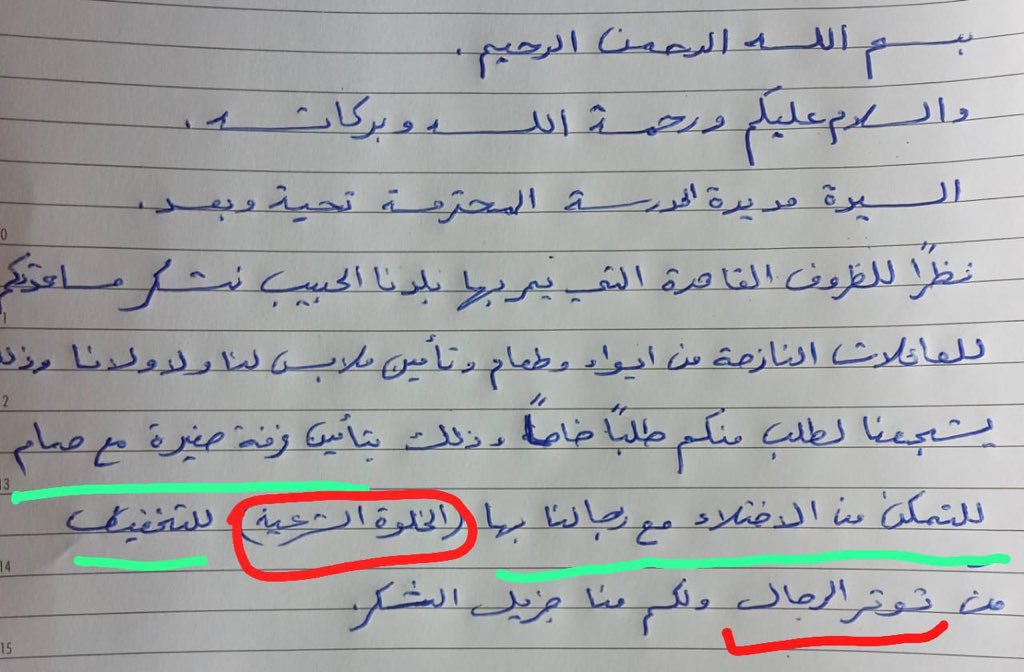 بسم الله الرحمن الرحيم.
والسلام عليكم ورحمة الله وبركاته.
السيدة مديرة المدرسة المحترمة تحية وبعد.
نظرًا للظروف القاهرة التي يمر بها بلدنا الحبيب نشكر مساعدتكم
للعائلات النازحة من ايواء وطعام وتأمين ملابس لنا ولاولادنا وذلك
يشجعنا لطلب منكم طلبًا خاصًا وذلك بتأمين غرفة صغيرة مع حمام
للتمكن من الاختلاء مع رجالنا بها (الخلوة الشرعية) للتخفيف
من توتر الرجال ولكم منا جزيل الشكر.